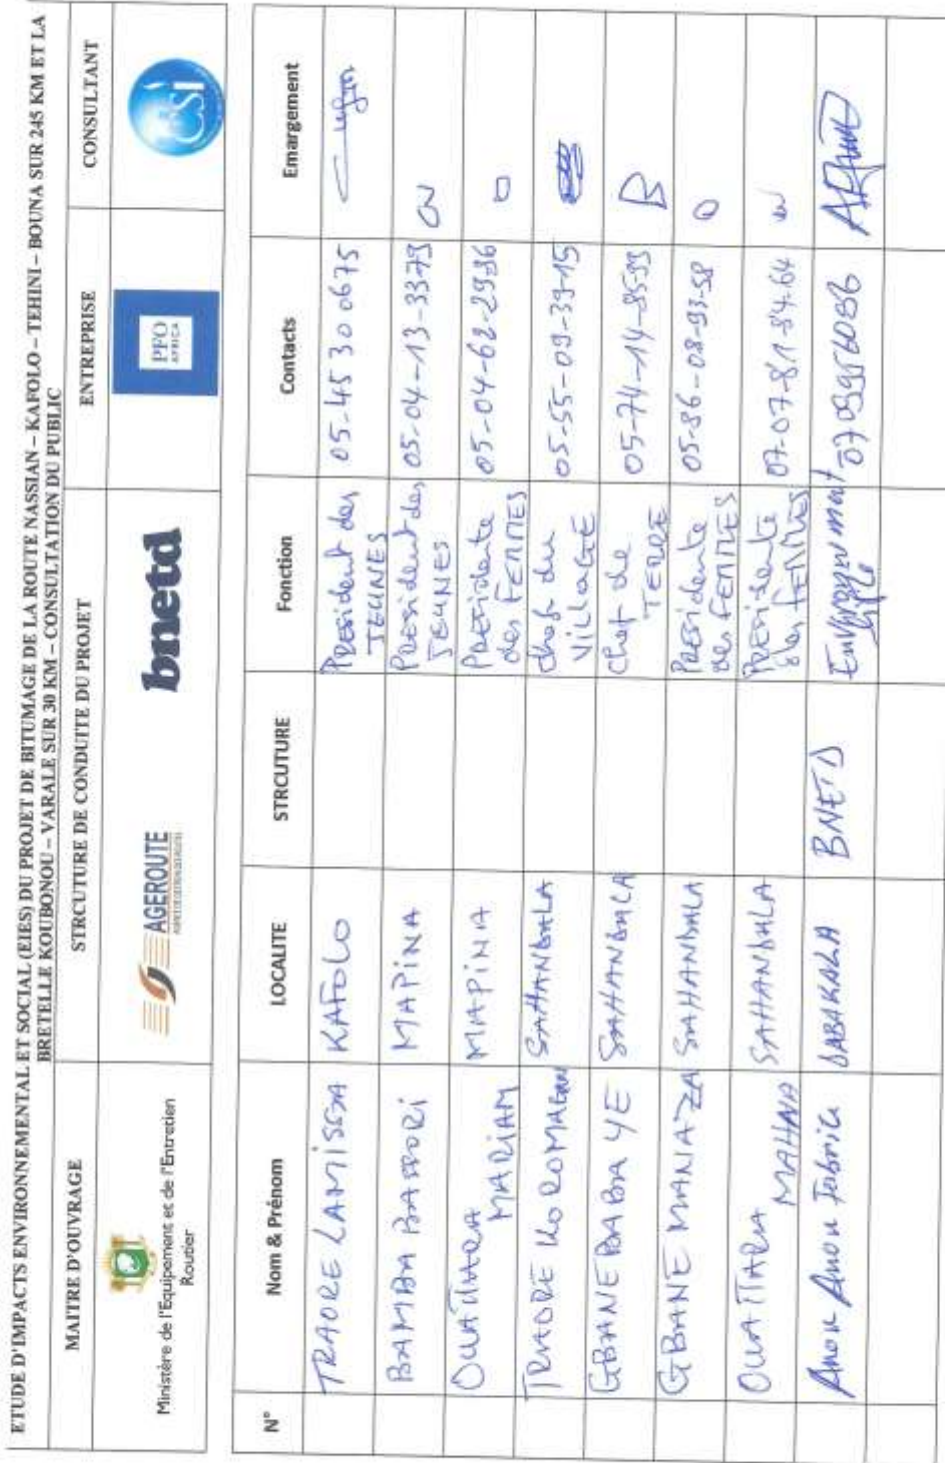 ETUDE D'IMPACTS ENVIRONNEMENTAL ET SOCIAL (EIES) DU PROJET DE BITUMAGE DE LA ROUTE NASSIAN – KAFOLO – TEHINI – BOUNA SUR 245 KM ET LA
BRETELLE KOUBONOU – VARALE SUR 30 KM – CONSULTATION DU PUBLIC
MAITRE D'OUVRAGE STRCUTURE DE CONDUITE DU PROJET ENTREPRISE CONSULTANT
Ministère de l'Equipement et de l'Entretien
Routier
AGEROUTE
bnetd
PFO
AFRICA
N° Nom & Prénom LOCALITE STRCUTURE Fonction Contacts Emargement
TRAORE LAMISSA KAFOLO President des
JEUNES 05.45 30 0675
BAMBA MAPINA President des
JEUNES 05-04-13-3379
OUATTARA
MARIAM MAPINA Presidente
des FEMMES 05-04-62-2996
TRAORE SAHANDALA chef du
VILLAGE 05-55-09-39-15
GBANE BABA YE SAHANDALA chef de
TERRE 05-74-14-85-99
GBANE MANAZA SAHANDALA Presidente
des FEMMES 05-86-08-93-58
OUATTARA
MAHNA SAHANDALA Presidente
des FEMMES 07-07-81-84-64
Anon Anon Fabrice DABAKALA BNETD